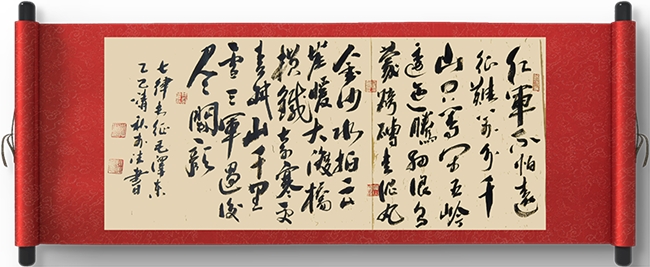 红軍不怕遠
征難万水千
山只等闲五岭
逶迤騰细浪乌
蒙磅礴走泥丸
金沙水拍云
崖暖大渡橋
横鐵索寒更
喜岷山千里
雪三軍過後
尽開颜
七律长征毛澤東
乙巳 書